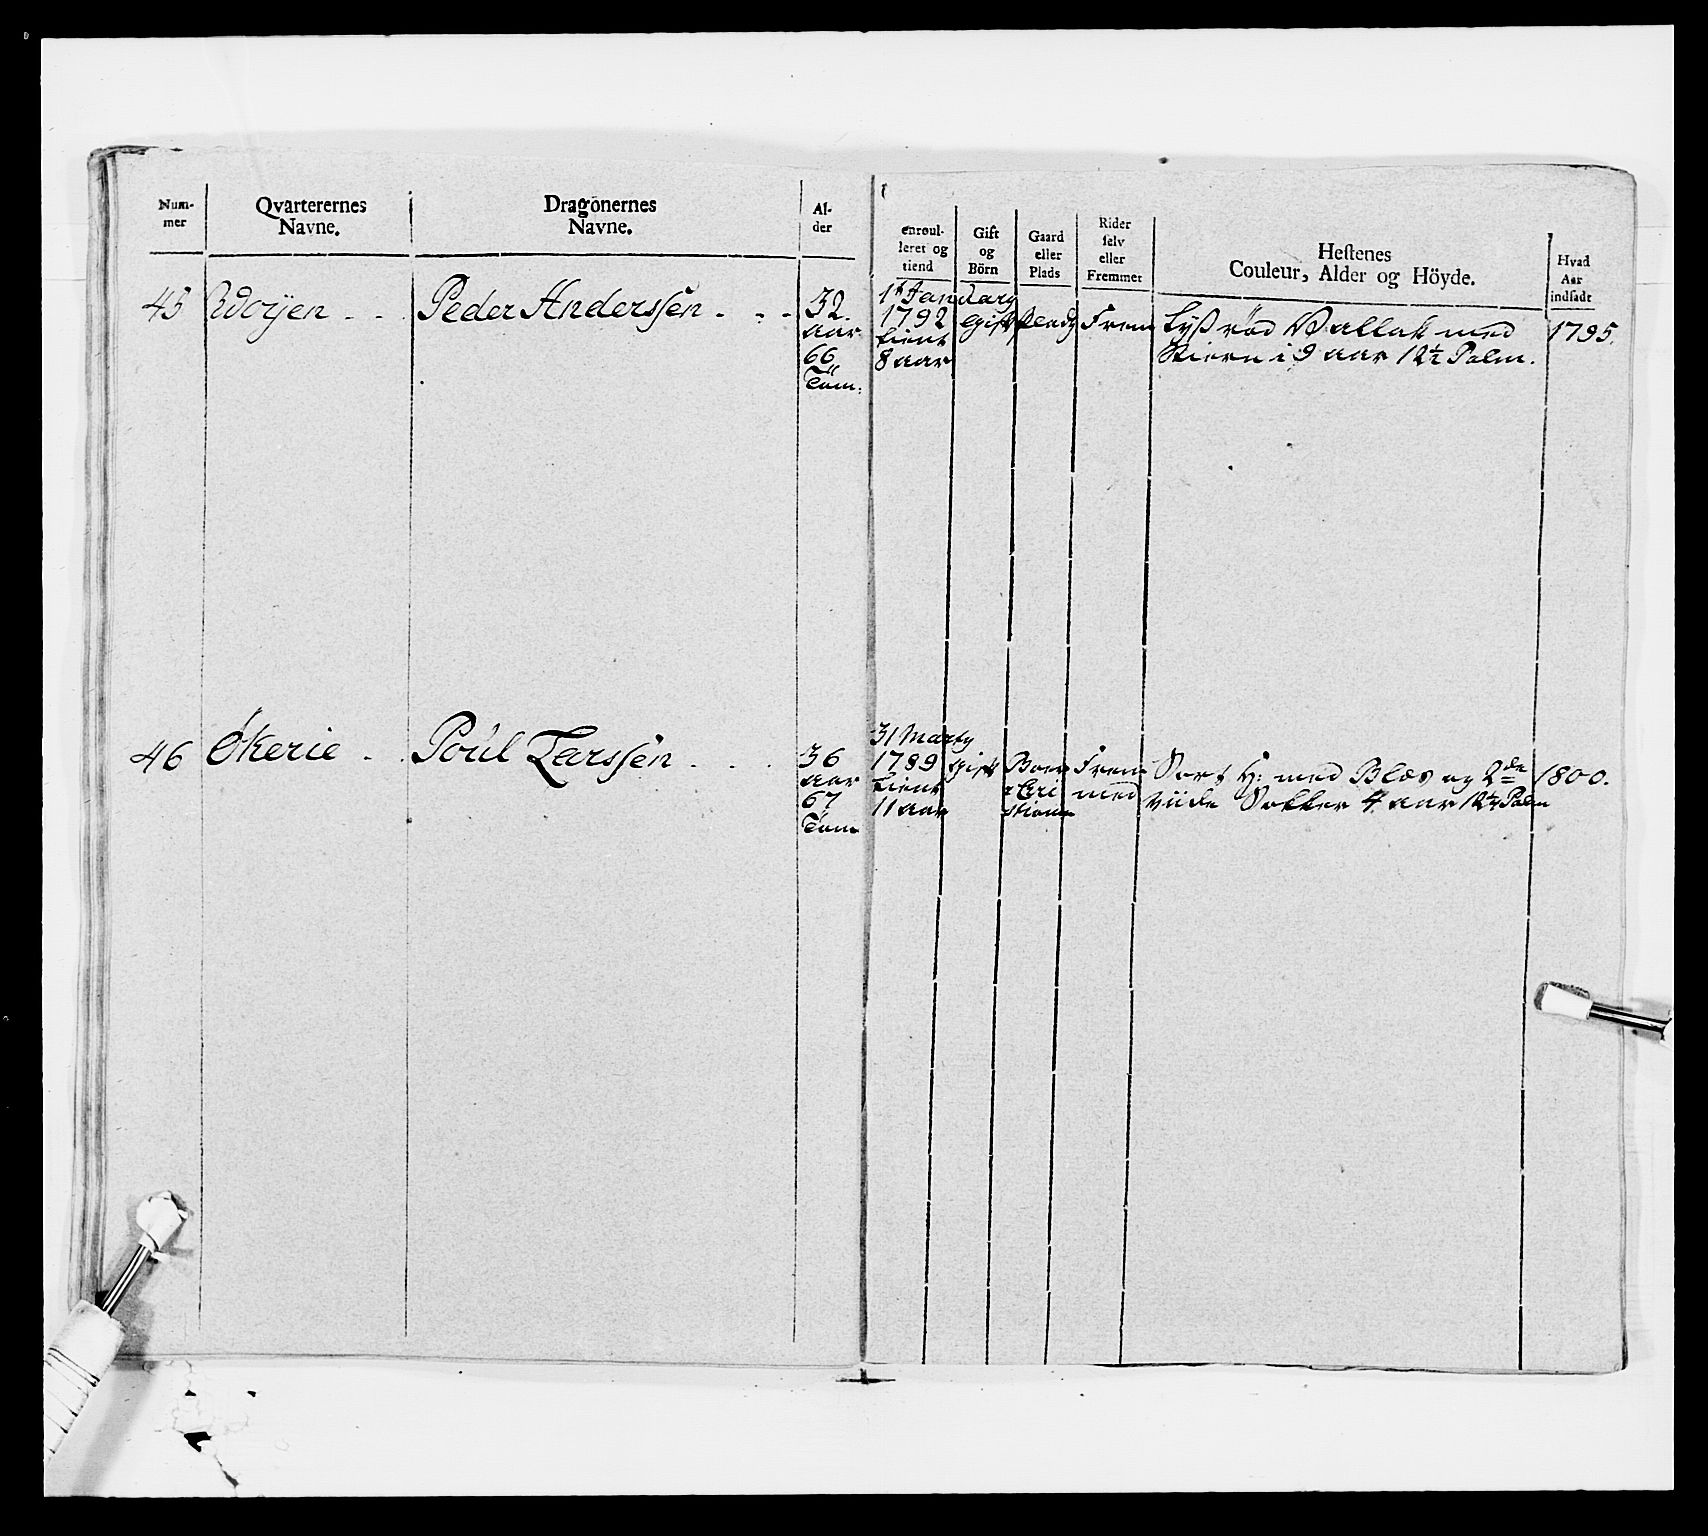 Num-
mer
Qvarterernes
Navne.
Dragonernes
Navne.
Al-
der
enroul-
leret og
tiend
Gift
og
Börn
Gaard
eller
Plads
Rider
ſelv
eller
Fremmet
Heſtenes
Couleur, Alder og Höyde.
Hvad
Aar
indſadt
45
Peder Anderssen
32.
aar
66
Tom:
1ſt January
1792
tient
8 aar
Gift
Plads
Frem
Lysſ rød Vallak med
Stiern i 9 aar 12½ Palm.
1795.
46
Økerie
Poul Larssen
36
aar
67
Tom
31 Marty
1789
tient
11 aar
Gift
Frem
med
Sort H: med Blæs og 2de
viide Sokker 4 aar 12½ Palm
1800.